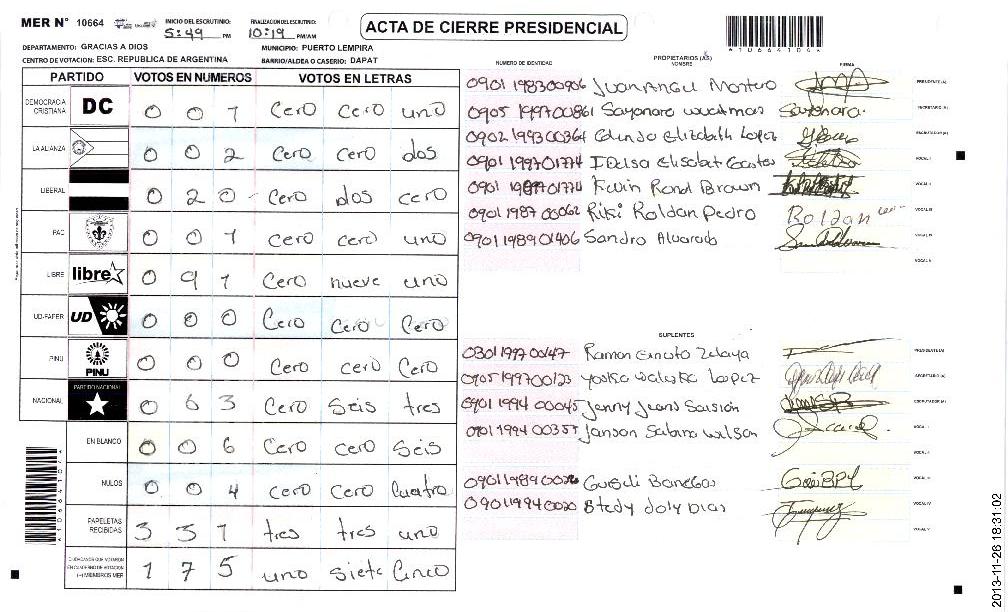 MER N° 10664
INICIO DEL ESCRUTINIO: 5:49 PM
FINALIZACION DEL ESCRUTINIO: 10:19 PM/AM
ACTA DE CIERRE PRESIDENCIAL
DEPARTAMENTO: GRACIAS A DIOS
MUNICIPIO: PUERTO LEMPIRA
CENTRO DE VOTACION: ESC. REPUBLICA DE ARGENTINA
BARRIO/ALDEA O CASERIO: DAPAT
PARTIDO VOTOS EN NUMEROS VOTOS EN LETRAS
DEMOCRACIA CRISTIANA DC 0 0 1 Cero Cero uno
LA ALIANZA 0 0 2 Cero Cero dos
LIBERAL 0 2 0 Cero dos cero
PAC 0 0 1 Cero Cero uno
LIBRE libre 0 9 1 Cero nueve uno
UD-FAPER UD 0 0 0 Cero Cero Cero
PINU PINU 0 0 0 Cero Cero Cero
NACIONAL PARTIDO NACIONAL 0 6 3 Cero Seis tres
EN BLANCO 0 0 6 Cero Cero Seis
NULOS 0 0 4 Cero Cero Cuatro
PAPELETAS RECIBIDAS 3 3 1 tres tres uno
CIUDADANOS QUE VOTARON EN CUADERNO DE VOTACION (+) MIEMBROS MER 1 7 5 uno Siete Cinco
NUMERO DE IDENTIDAD
PROPIETARIOS (AS)
NOMBRE
FIRMA
Juan Angel Montero PRESIDENTE(A)
0905 1997 00861 Sayonara Sayonara SECRETARIO (A)
0902 1993 00364 Elizabeth Lopez ESCRUTADOR (A)
0901 1997 01774 VOCAL I
Kevin Rond Brown VOCAL II
0901 1987 00062 Riki Roldan Pedro VOCAL III
0901 1989 01406 Sandro Alvarado VOCAL IV
VOCAL V
SUPLENTES
0301 1997 00147 Ramon Zelaya PRESIDENTE(A)
0905 1997 00123 Lopez SECRETARIO (A)
0901 1994 00045 Jenny ESCRUTADOR (A)
0901 1994 00357 Janson Sabino Wilson VOCAL I
VOCAL II
Banegas VOCAL III
0901 1994 VOCAL IV
VOCAL V
2013-11-26 18:31:02